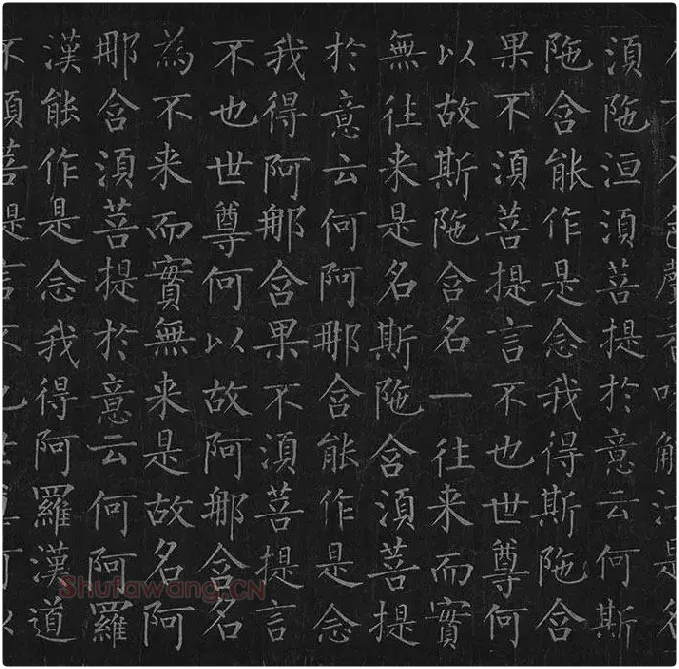 入不入色聲香味觸法是名
湏陁洹湏菩提於意云何斯
陁含能作是念我得斯陁含
果不湏菩提言不也世尊何
以故斯陁含名一往来而實
無往来是名斯陁含湏菩提
於意云何阿那含能作是念
我得阿那含果不湏菩提言
不也世尊何以故阿那含名
為不来而實無来是故名阿
那含湏菩提於意云何阿羅
漢能作是念我得阿羅漢道
不湏菩提言不也世尊何以
Shufawang.CN